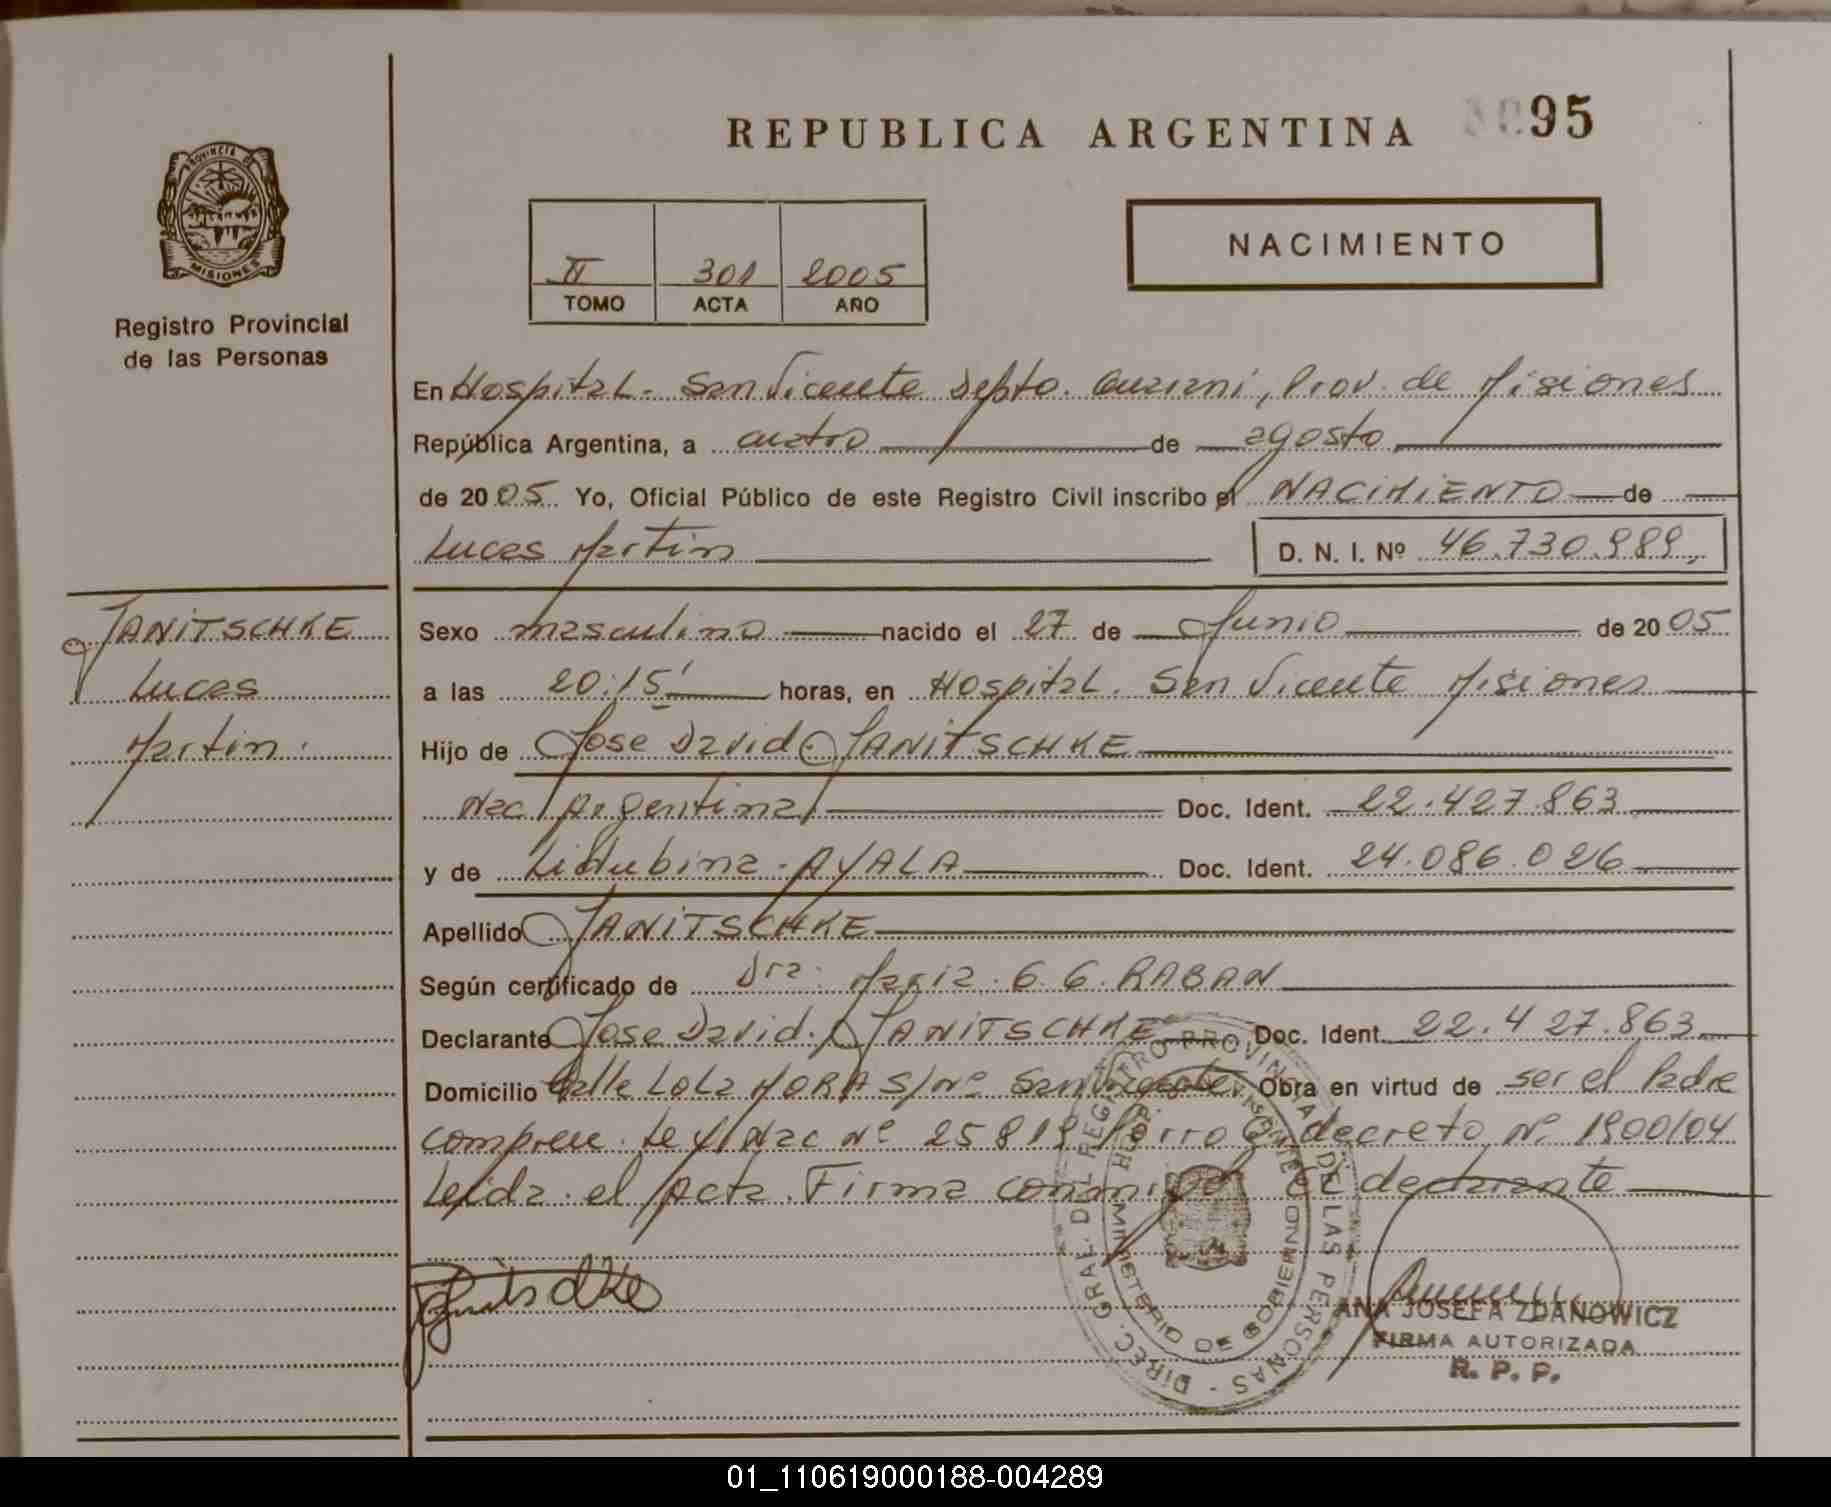 REPUBLICA ARGENTINA 0095
PROVINCIA DE
MISIONES
Registro Provincial
de las Personas
II 301 2005
TOMO ACTA AÑO
NACIMIENTO
En Hospital - San Vicente Depto. Guarani, Prov. de Misiones
República Argentina, a cuatro de agosto
de 2005 Yo, Oficial Público de este Registro Civil inscribo el NACIMIENTO de
Lucas Martin D. N. I. Nº 46.730.989
JANITSCHKE
Lucas
Martin.
Sexo masculino nacido el 27 de Junio de 2005
a las 20:15' horas, en Hospital. San Vicente Misiones
Hijo de Jose David. JANITSCHKE
Nac. Argentina Doc. Ident. 22.427.863
y de Lidubina - AYALA Doc. Ident. 24.086.026
Apellido JANITSCHKE
Según certificado de Dra. Maria. G. G. RABAN
Declarante Jose David. JANITSCHKE Doc. Ident. 22.427.863
Domicilio Calle Lola MORA S/nº San Vicente Obra en virtud de ser el Padre
compren. Ley Nac Nº 25819 decreto Nº 1900/04
Leida el Acta. Firma conmigo el declarante
DIREC. GRAL. DEL REGISTRO PROVINCIAL DE LAS PERSONAS
MINISTERIO DE GOBIERNO
ANA JOSEFA ZDANOWICZ
FIRMA AUTORIZADA
R. P. P.
01_110619000188-004289